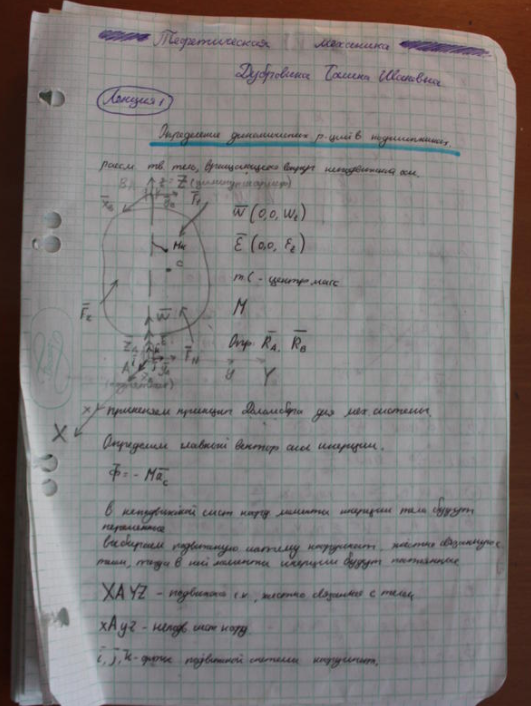 Теоретическая механика
Дубровина Галина Ивановна
Лекция 1
Определение динамических р-ций в подшипниках.
рассм тв тело, вращающееся вокруг неподвижной оси.
z Z
F̄₁
W̄ (0,0, W_z)
M_k
Ē (0,0, E_z)
C
т.С - центр масс
M
F̄_k
W̄
Опр. R̄_A, R̄_B
F̄_N
A
y Y
(подпятник)
x применяем принцип Даламбера для мех. системы
X
Определим главный вектор сил инерции.
Φ̄ = - Mā_c
В неподвижной сист коорд моменты инерции тела будут
переменные
выбираем подвижную систему координат жестко связанную с
телом, тогда в ней моменты инерции будут постоянные
XAYZ - подвижная с.к., жестко связанная с телом
xAyz - неподв. сист коорд
ī, j̄, k̄ - орты подвижной системы координат.